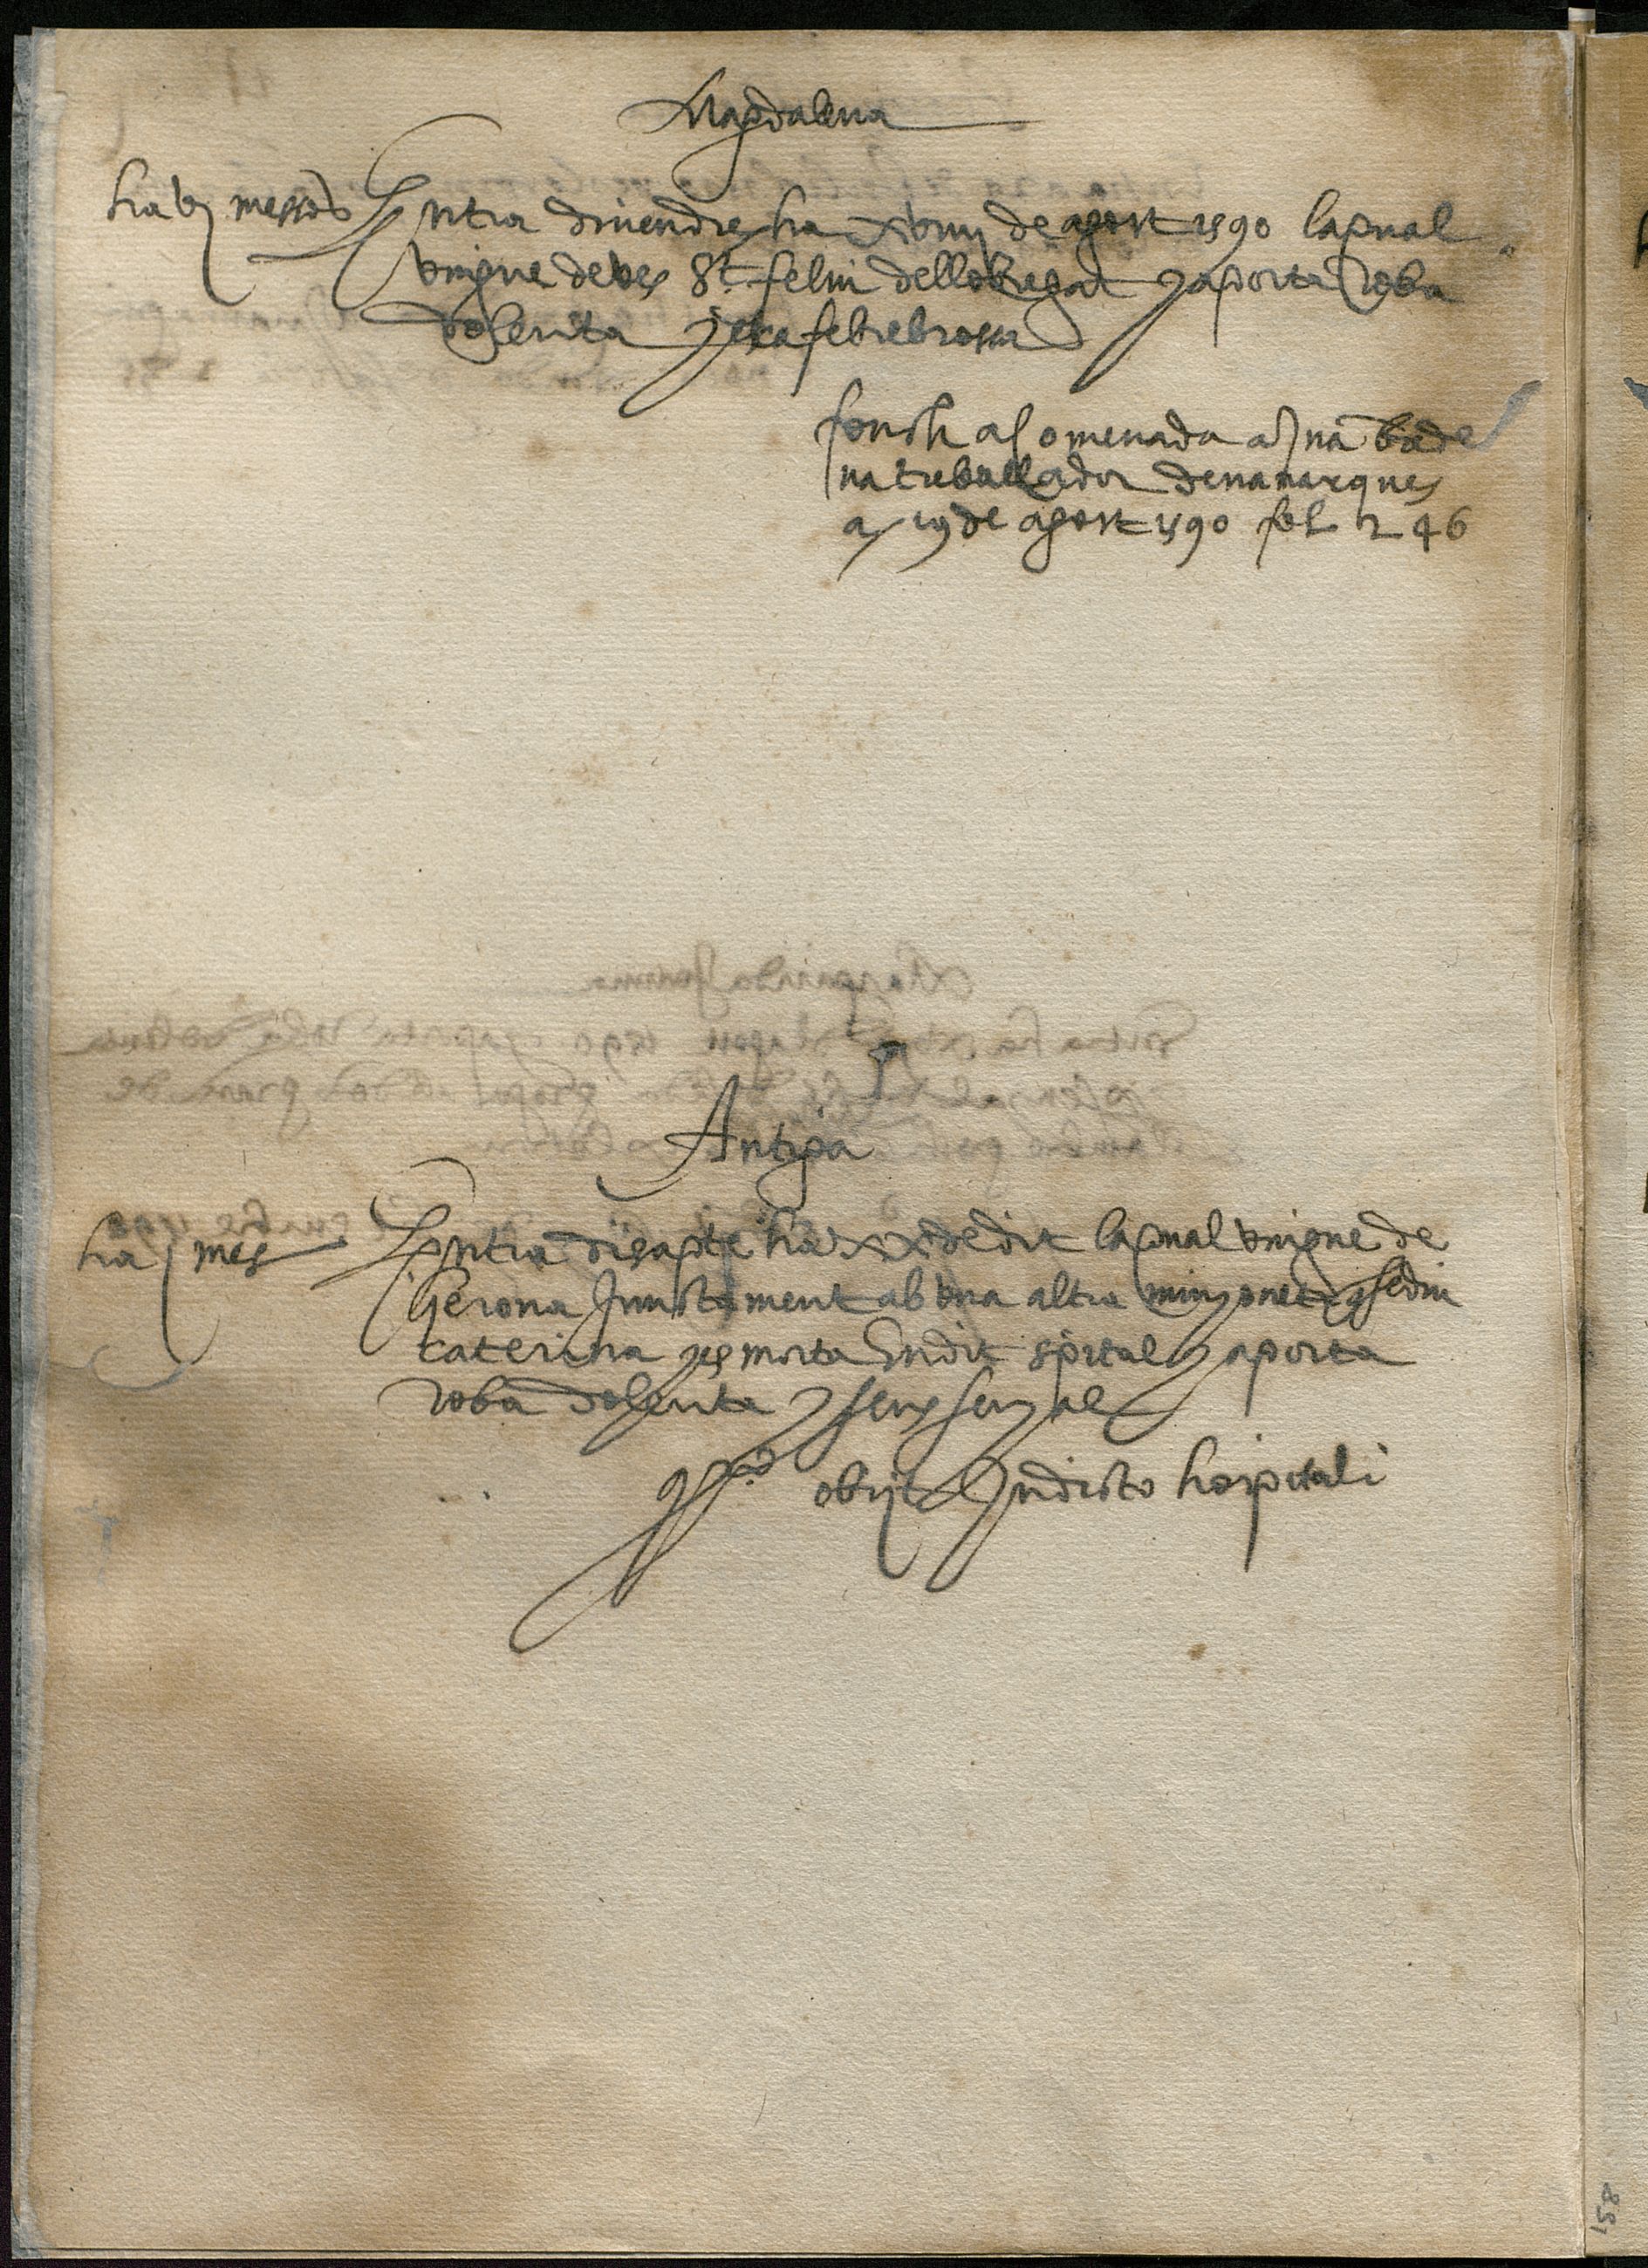 Magdalena
ha vj messos Entra divendres ha xviiij de agost 1590 laqual
vingue de ves St feliu dellobregat y aporta roba
dolenta y era febrebrosa
fonch acomenada a na bade
na treballador
a 19 de agost 1590 fol 246
Antiga
ha j mes Entra disapte ha xx de dit laqual vingue de
Gerona Junctament ab una altra minyoneta q se diu
caterina y es morta en dit spital y aporta
roba dolenta y sens senyal
obijt In dicto hospitali
158